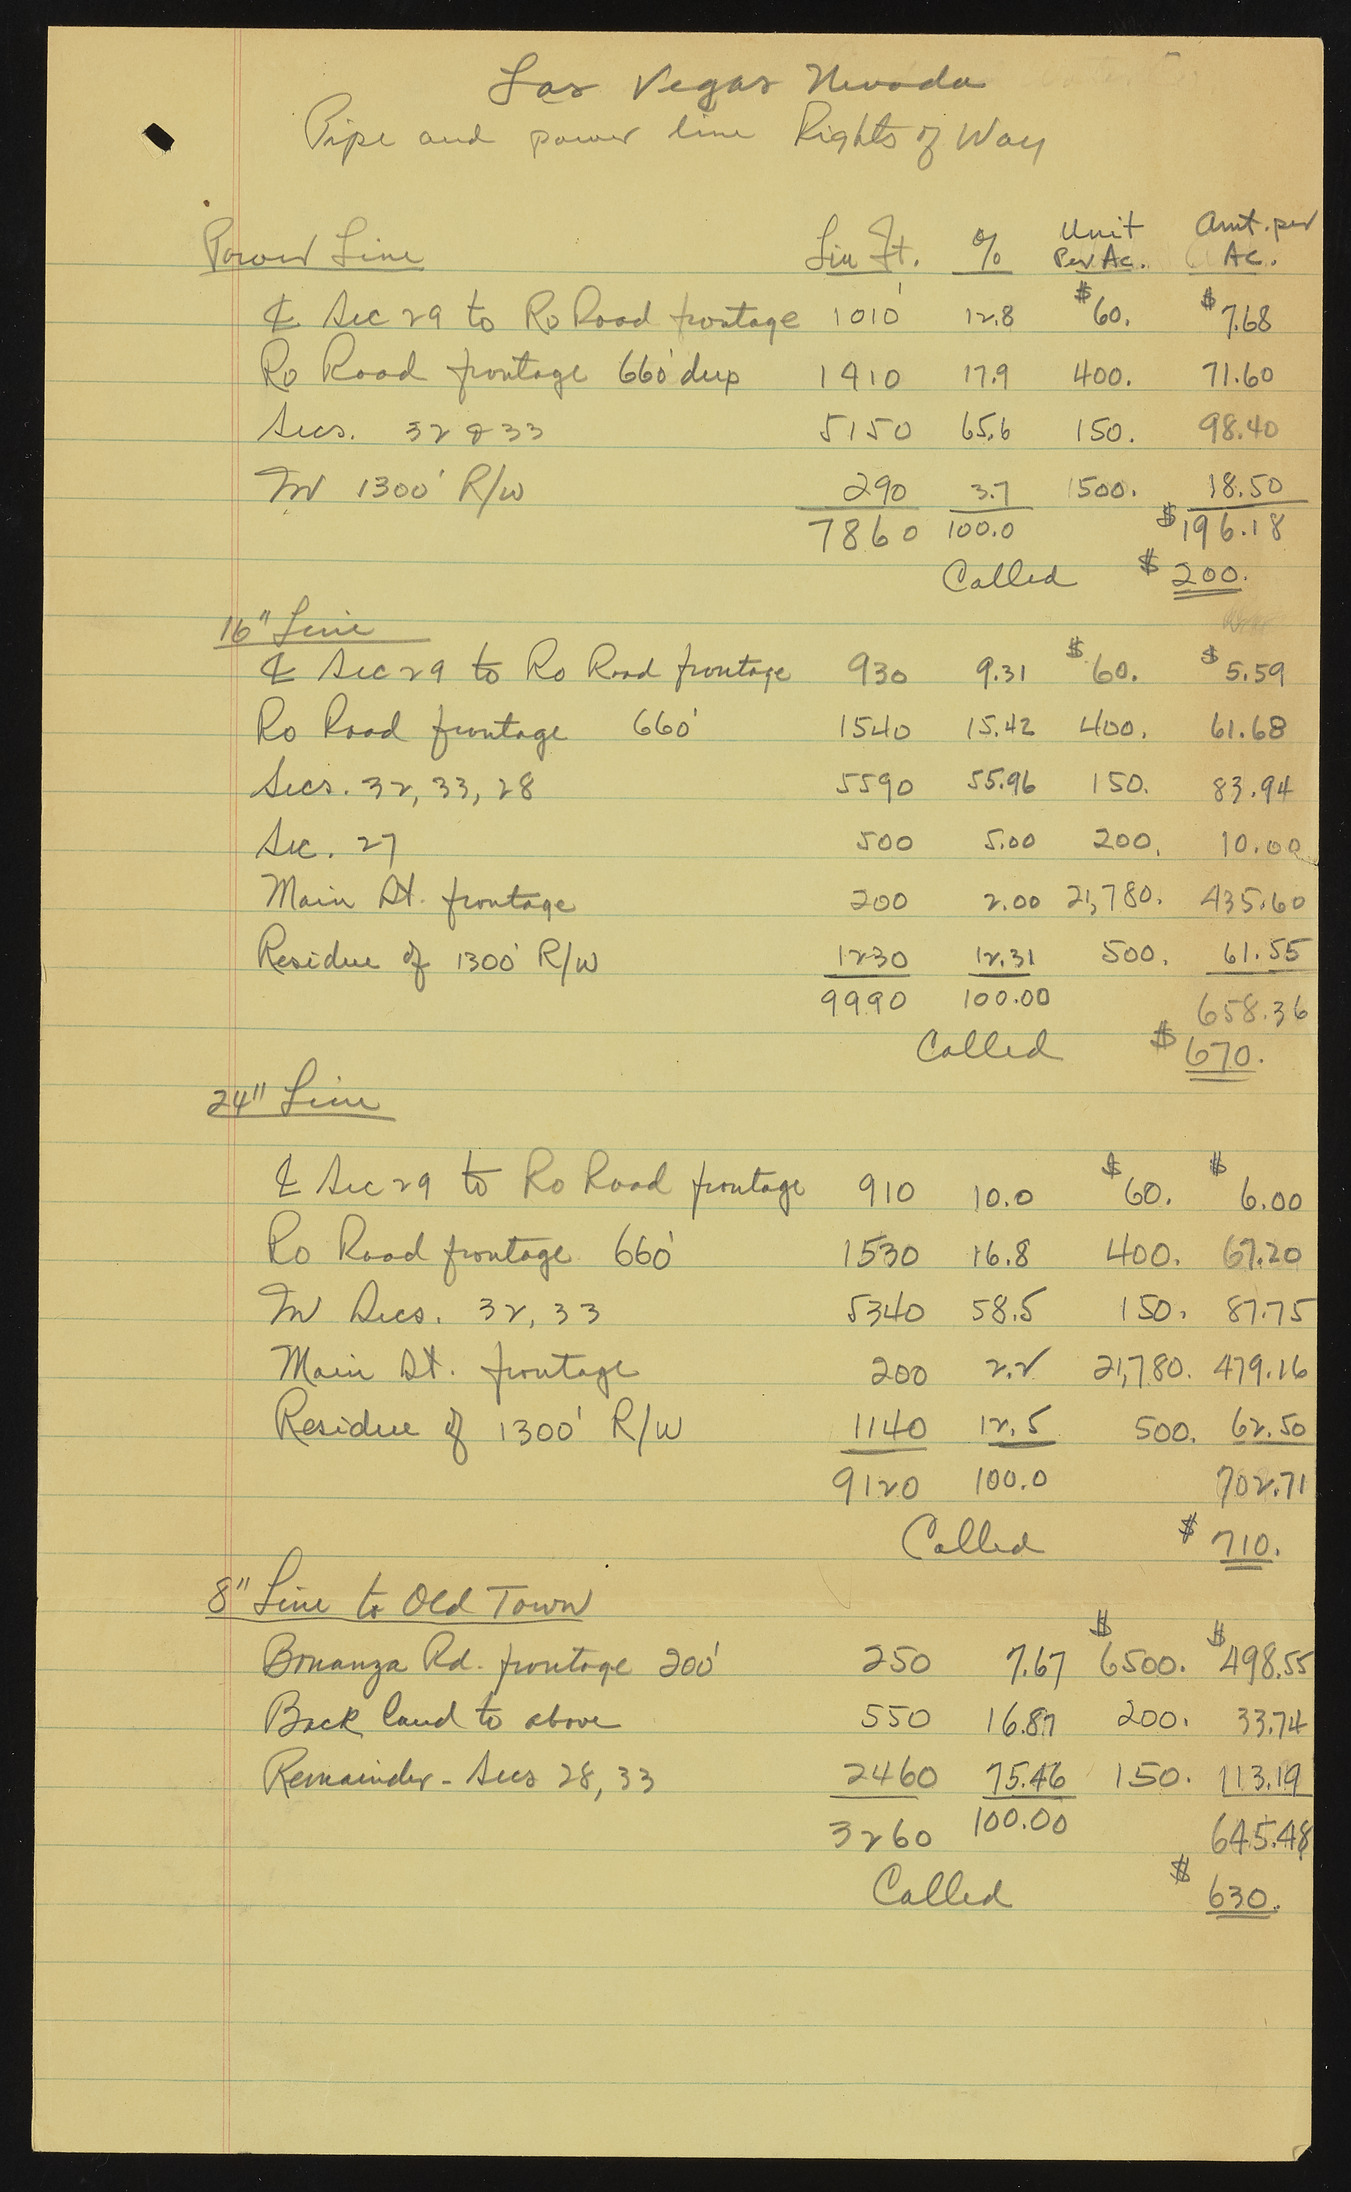 Las Vegas Nevada
Pipe and power line Rights of Way
Power Line Lin Ft. % Unit Per Ac. Amt. per Ac.
℄ Sec 29 to Ro Road frontage 1010' 12.8 $60. $7.68
Ro Road frontage 660' deep 1410 17.9 400. 71.60
Secs. 32 & 33 5150 65.6 150. 98.40
In 1300' R/W 290 3.7 1500. 18.50
7860 100.0 $196.18
Called $200.
16" Line
℄ Sec 29 to Ro Road frontage 930 9.31 $60. $5.59
Ro Road frontage 660' 1540 15.42 400. 61.68
Secs. 32, 33, 28 5590 55.96 150. 83.94
Sec. 27 500 5.00 200. 10.00
Main St. frontage 200 2.00 21,780. 435.60
Residue of 1300' R/W 1230 12.31 500. 61.55
9990 100.00 658.36
Called $670.
24" Line
℄ Sec 29 to Ro Road frontage 910 10.0 $60. $6.00
Ro Road frontage 660' 1530 16.8 400. 67.20
In Secs. 32, 33 5340 58.5 150. 87.75
Main St. frontage 200 2.2 21,780. 479.16
Residue of 1300' R/W 1140 12.5 500. 62.50
9120 100.0 702.71
Called $710.
8" Line to Old Town
Bonanza Rd. frontage 200' 250 7.67 $6500. $498.55
Back land to above 550 16.87 200. 33.74
Remainder - Secs 28, 33 2460 75.46 150. 113.19
3260 100.00 645.48
Called $630.